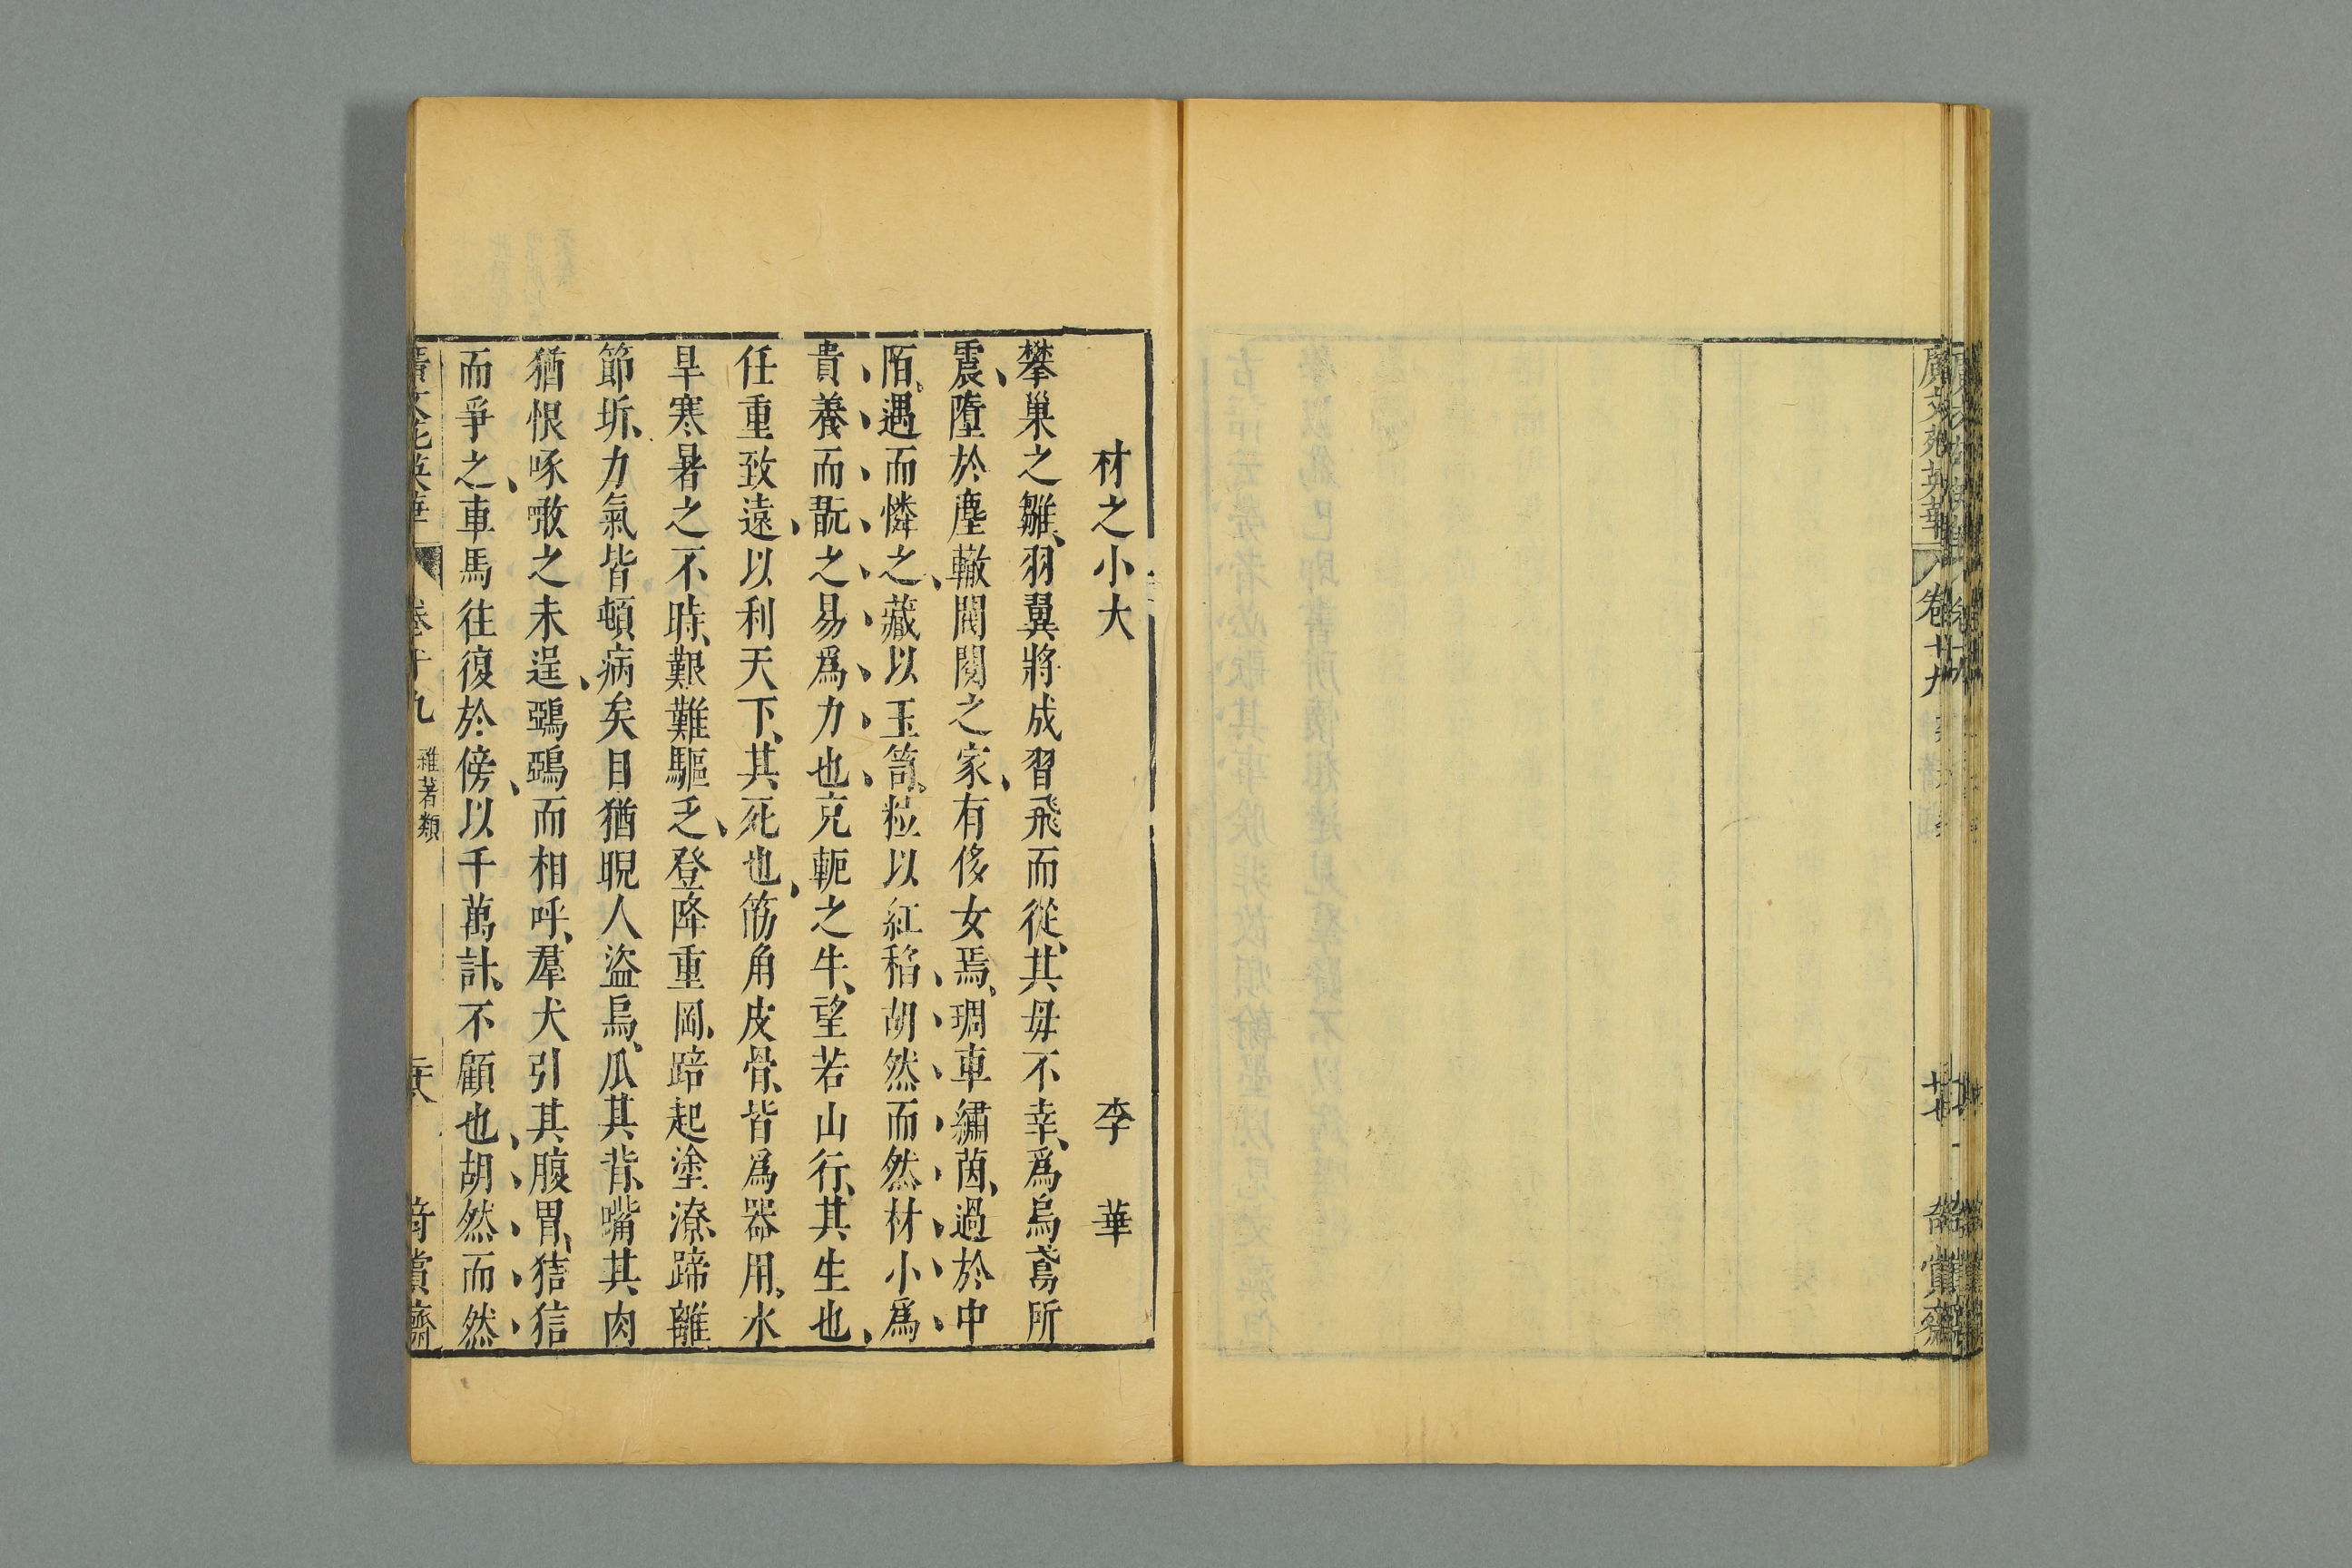 廣文苑英華 卷十九 廿七 奇賞齋
材之小大 李華
攀巢之雛、羽翼將成習飛而從、其母不幸、爲烏鳶所
震、墮於塵轍閭閻之家、有侈女焉、琱車繡茵、過於中
陌、遇而憐之、藏以玉笥、粒以紅稻胡然而然材小爲
貴養而翫之易爲力也、克軛之牛、望若山行、其生也、
任重致遠、以利天下、其死也、筋角皮骨、皆爲器用、水
旱寒暑之不時、艱難驅乏、登降重岡、踣起塗潦、蹄離
節坼、力氣皆頓、病矣目猶睨人盜烏、瓜其背、嘴其肉
猶恨啄噉之未逞、鵶鵶而相呼、羣犬引其腹胃、狺狺
而爭之、車馬往復於傍、以千萬計、不顧也、胡然而然
廣文苑英華 卷十九 雜著類 奇賞齋